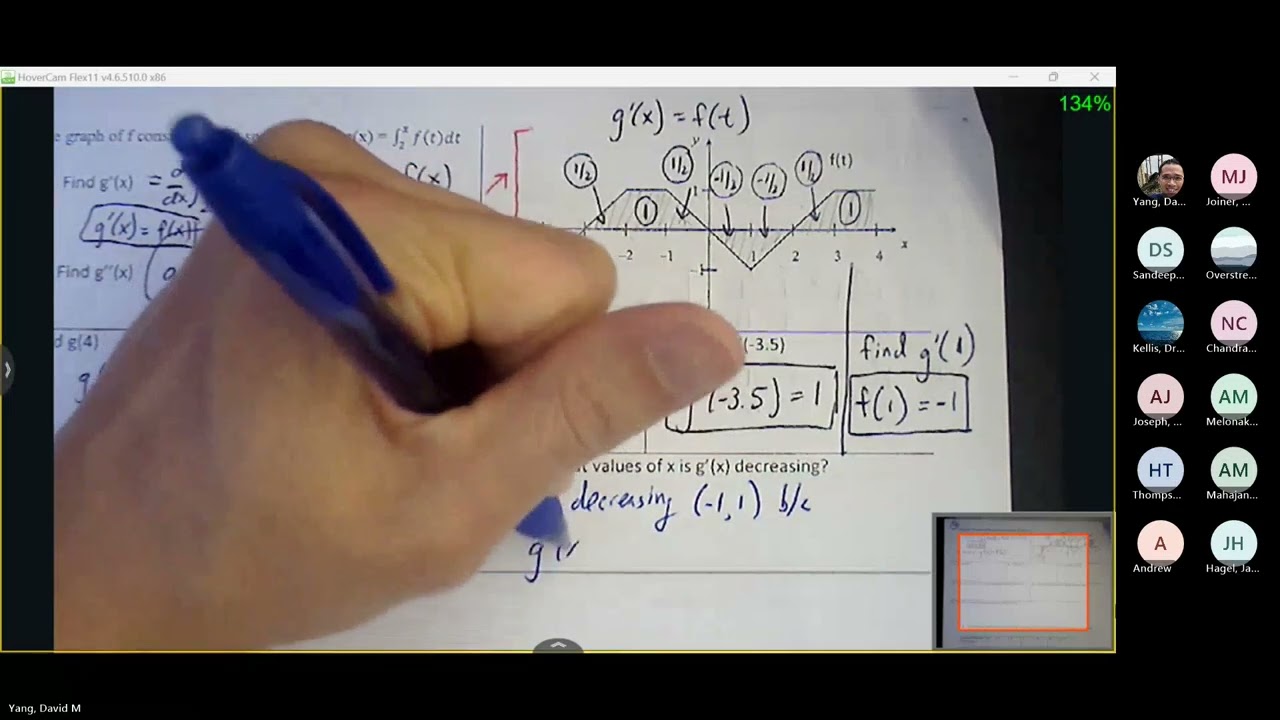 HoverCam Flex11 v4.6.510.0 x86
134%
g'(x) = f(t)
e graph of f
(x) = ∫₂ˣ f(t)dt
Find g'(x) =
f(x)
g'(x) = f(x)
Find g''(x)
y
1/2
1/2
-1/2
-1/2
1/2
f(t)
1
1
1
-2
-1
1
2
3
4
x
-1
d g(4)
(-3.5)
find g'(1)
(-3.5) = 1
f(1) = -1
values of x is g'(x) decreasing?
decreasing (-1,1) b/c
g
Yang, Da...
Joiner, ...
MJ
DS
Sandeep...
Overstre...
Kellis, Dr...
NC
Chandra...
AJ
Joseph, ...
AM
Melonak...
HT
Thomps...
AM
Mahajan...
A
Andrew
JH
Hagel, Ja...
Yang, David M